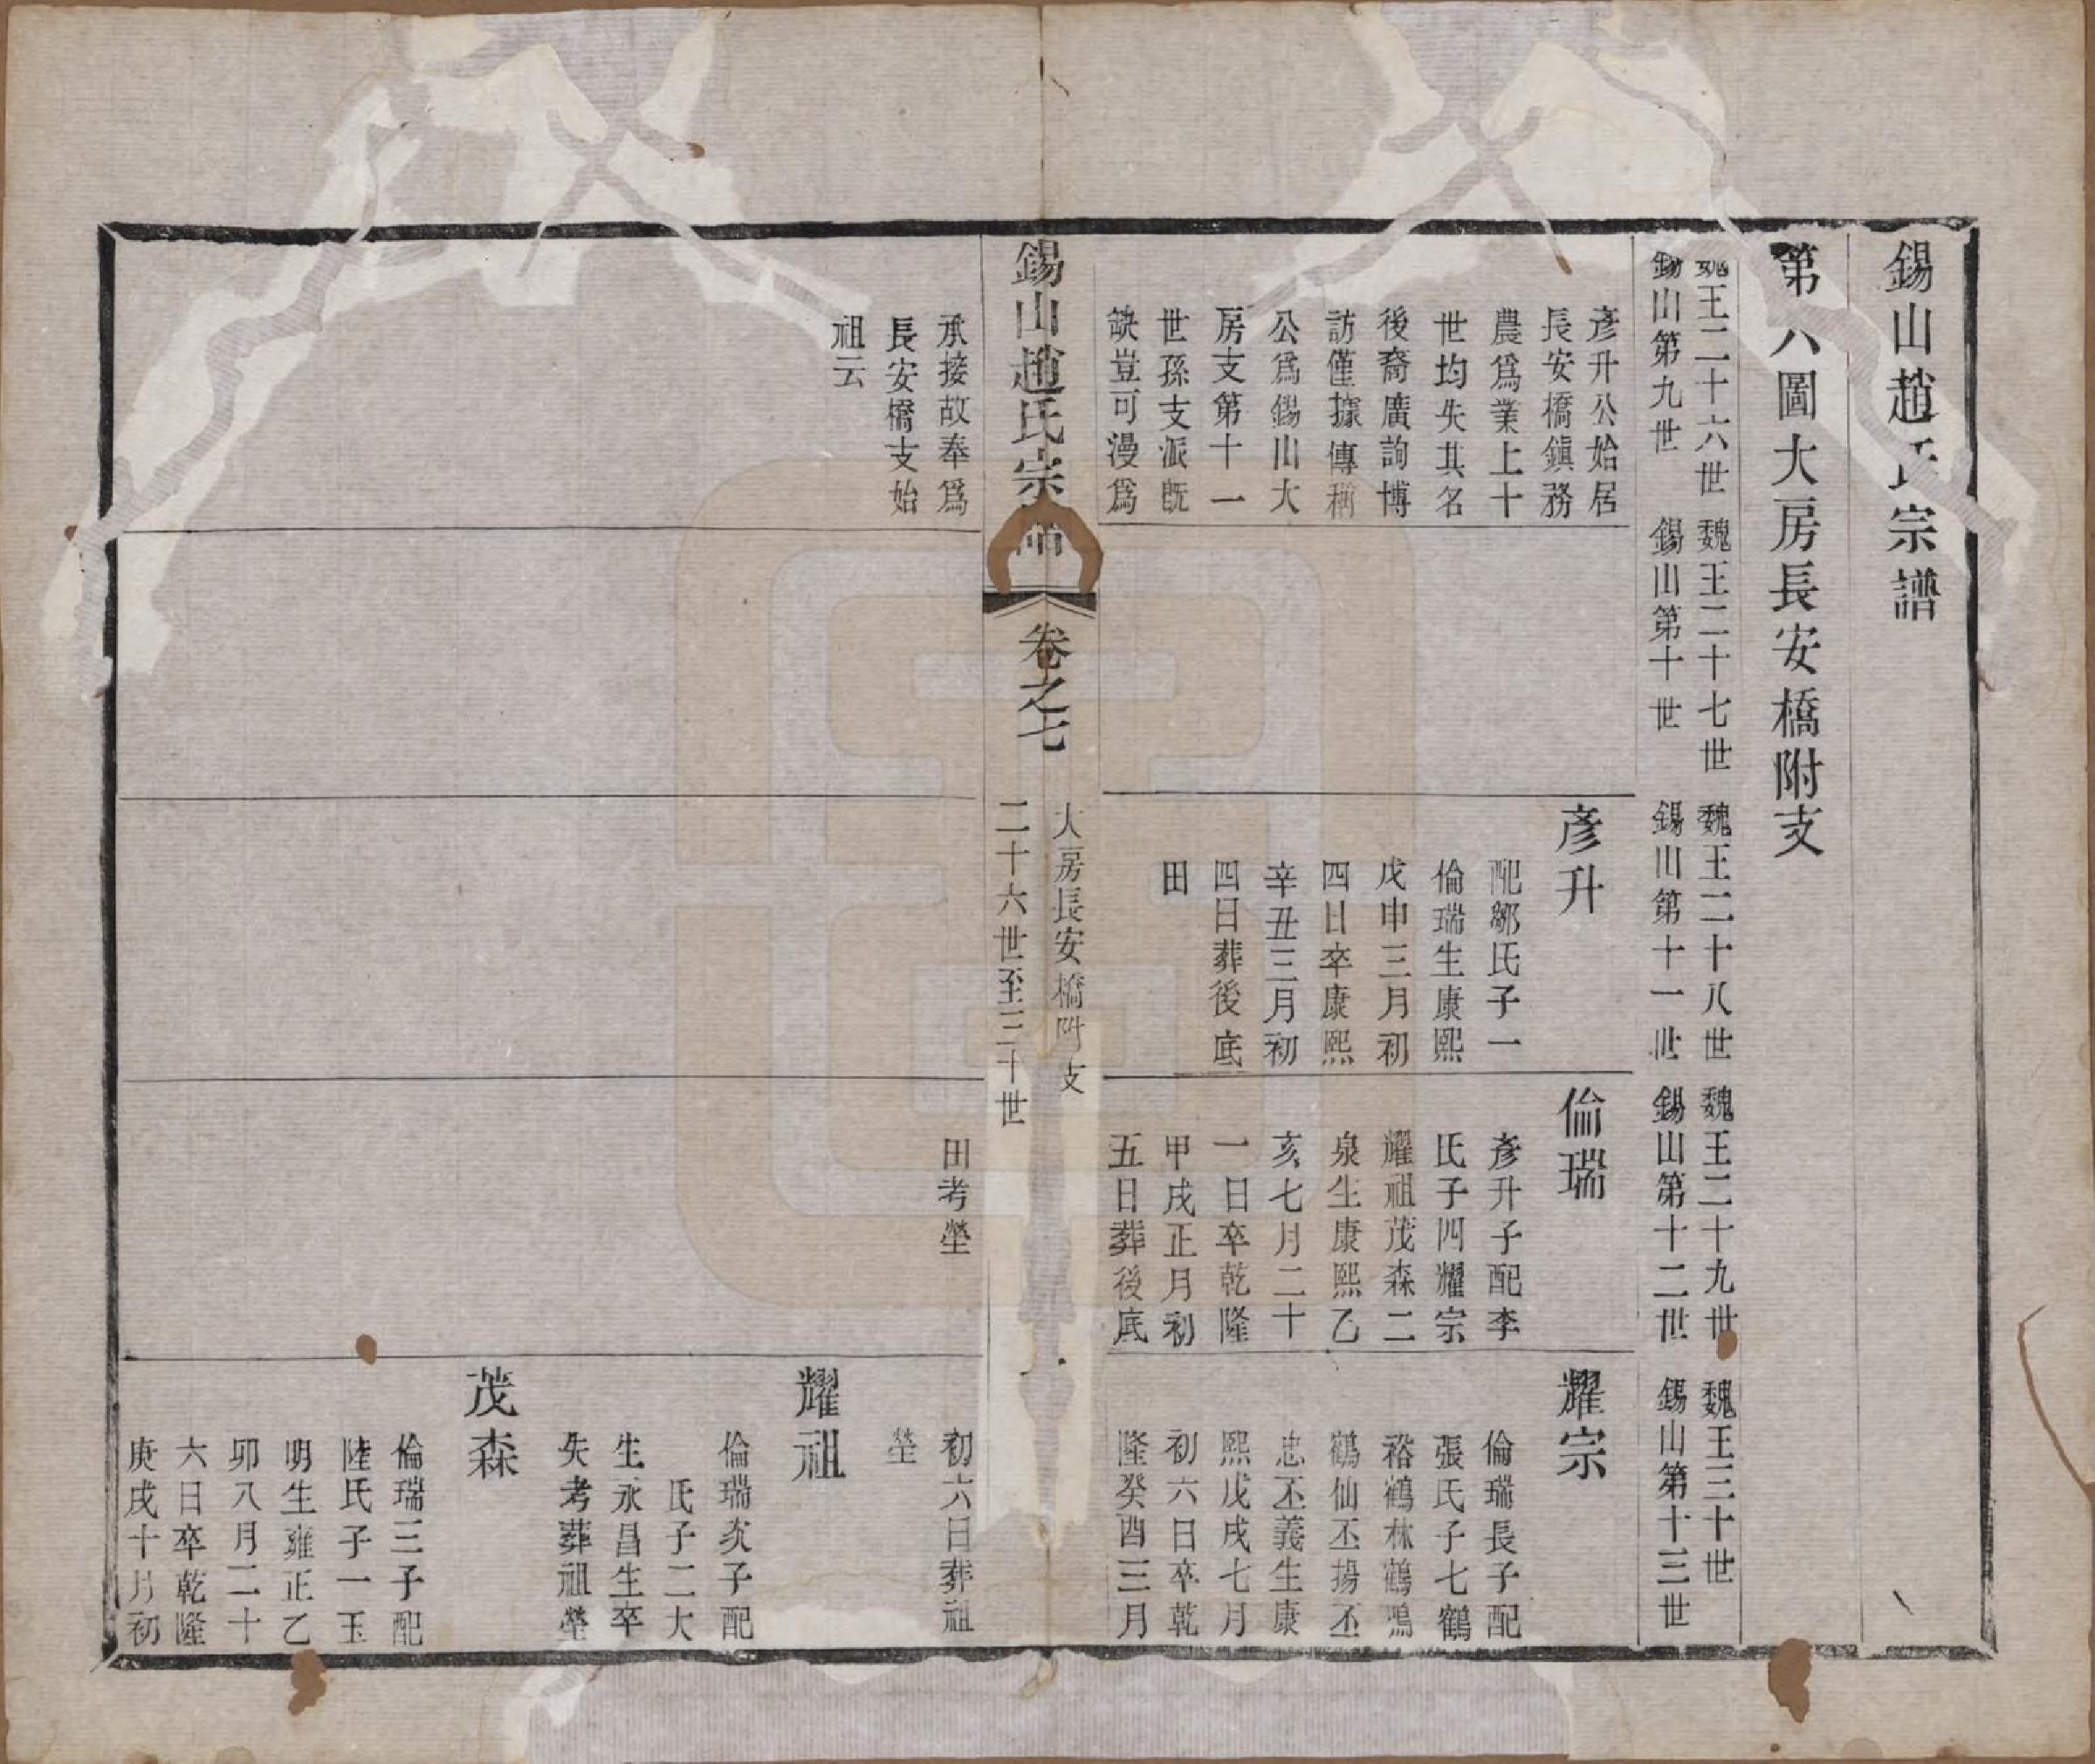 錫山趙氏宗譜
第八圖大房長安橋附支
魏王二十六世
錫山第九世
魏王二十七世
錫山第十世
魏王二十八世
錫山第十一世
魏王二十九世
錫山第十二世
魏王三十世
錫山第十三世
彥升公始居
長安橋鎮務
農爲業上十
世均失其名
後裔廣詢博
訪僅據傳稱
公爲錫山大
房支第十一
世孫支派旣
缺豈可漫爲
承接故奉爲
長安橋支始
祖云
彥升
配鄒氏子一
倫瑞生康熙
戊申三月初
四日卒康熙
辛丑三月初
四日葬後底
田
倫瑞
彥升子配李
氏子四耀宗
耀祖茂森二
泉生康熙乙
亥七月二十
一日卒乾隆
甲戌正月初
五日葬後底
田考塋
耀宗
倫瑞長子配
張氏子七鶴
裕鶴林鶴鳴
鶴仙丕揚丕
忠丕義生康
熙戊戌七月
初六日卒乾
隆癸酉三月
初六日葬祖
塋
耀祖
倫瑞次子配
氏子二大
生永昌生卒
失考葬祖塋
茂森
倫瑞三子配
陸氏子一玉
明生雍正乙
卯八月二十
六日卒乾隆
庚戌十月初
錫山趙氏宗譜
卷之七
大房長安橋附支
二十六世至三十世